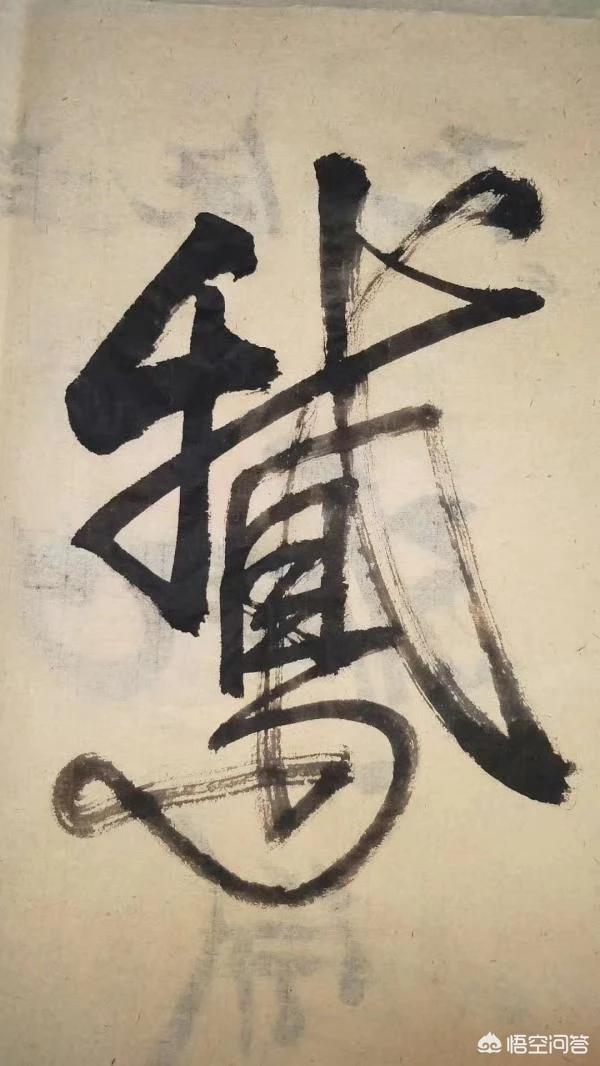 鵞
悟空问答